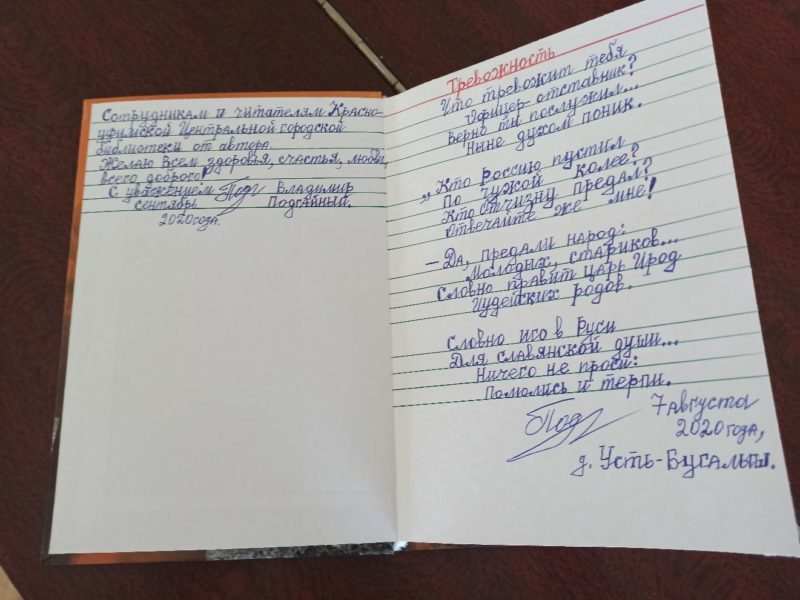 Сотрудникам и читателям Красно-
уфимской Центральной городской
библиотеки от автора.
Желаю Всем здоровья, счастья, любви,
всего доброго!
С уважением Под Владимир
сентябрь Подгайный.
2020года.
Тревожность
Что тревожит тебя
Офицер-отставник?
Верно ты послужил...
Ныне духом поник.
„ Кто Россию пустил
По чужой колее?
Кто Отчизну предал?
Отвечайте же мне!
– Да, предали народ:
Молодых, стариков...
Словно правит царь Ирод
Иудейских родов.
Словно иго в Руси
Для славянской души...
Ничего не проси:
Помолись и терпи.
Под 7 августа
2020года,
д. Усть-Бугалыш.